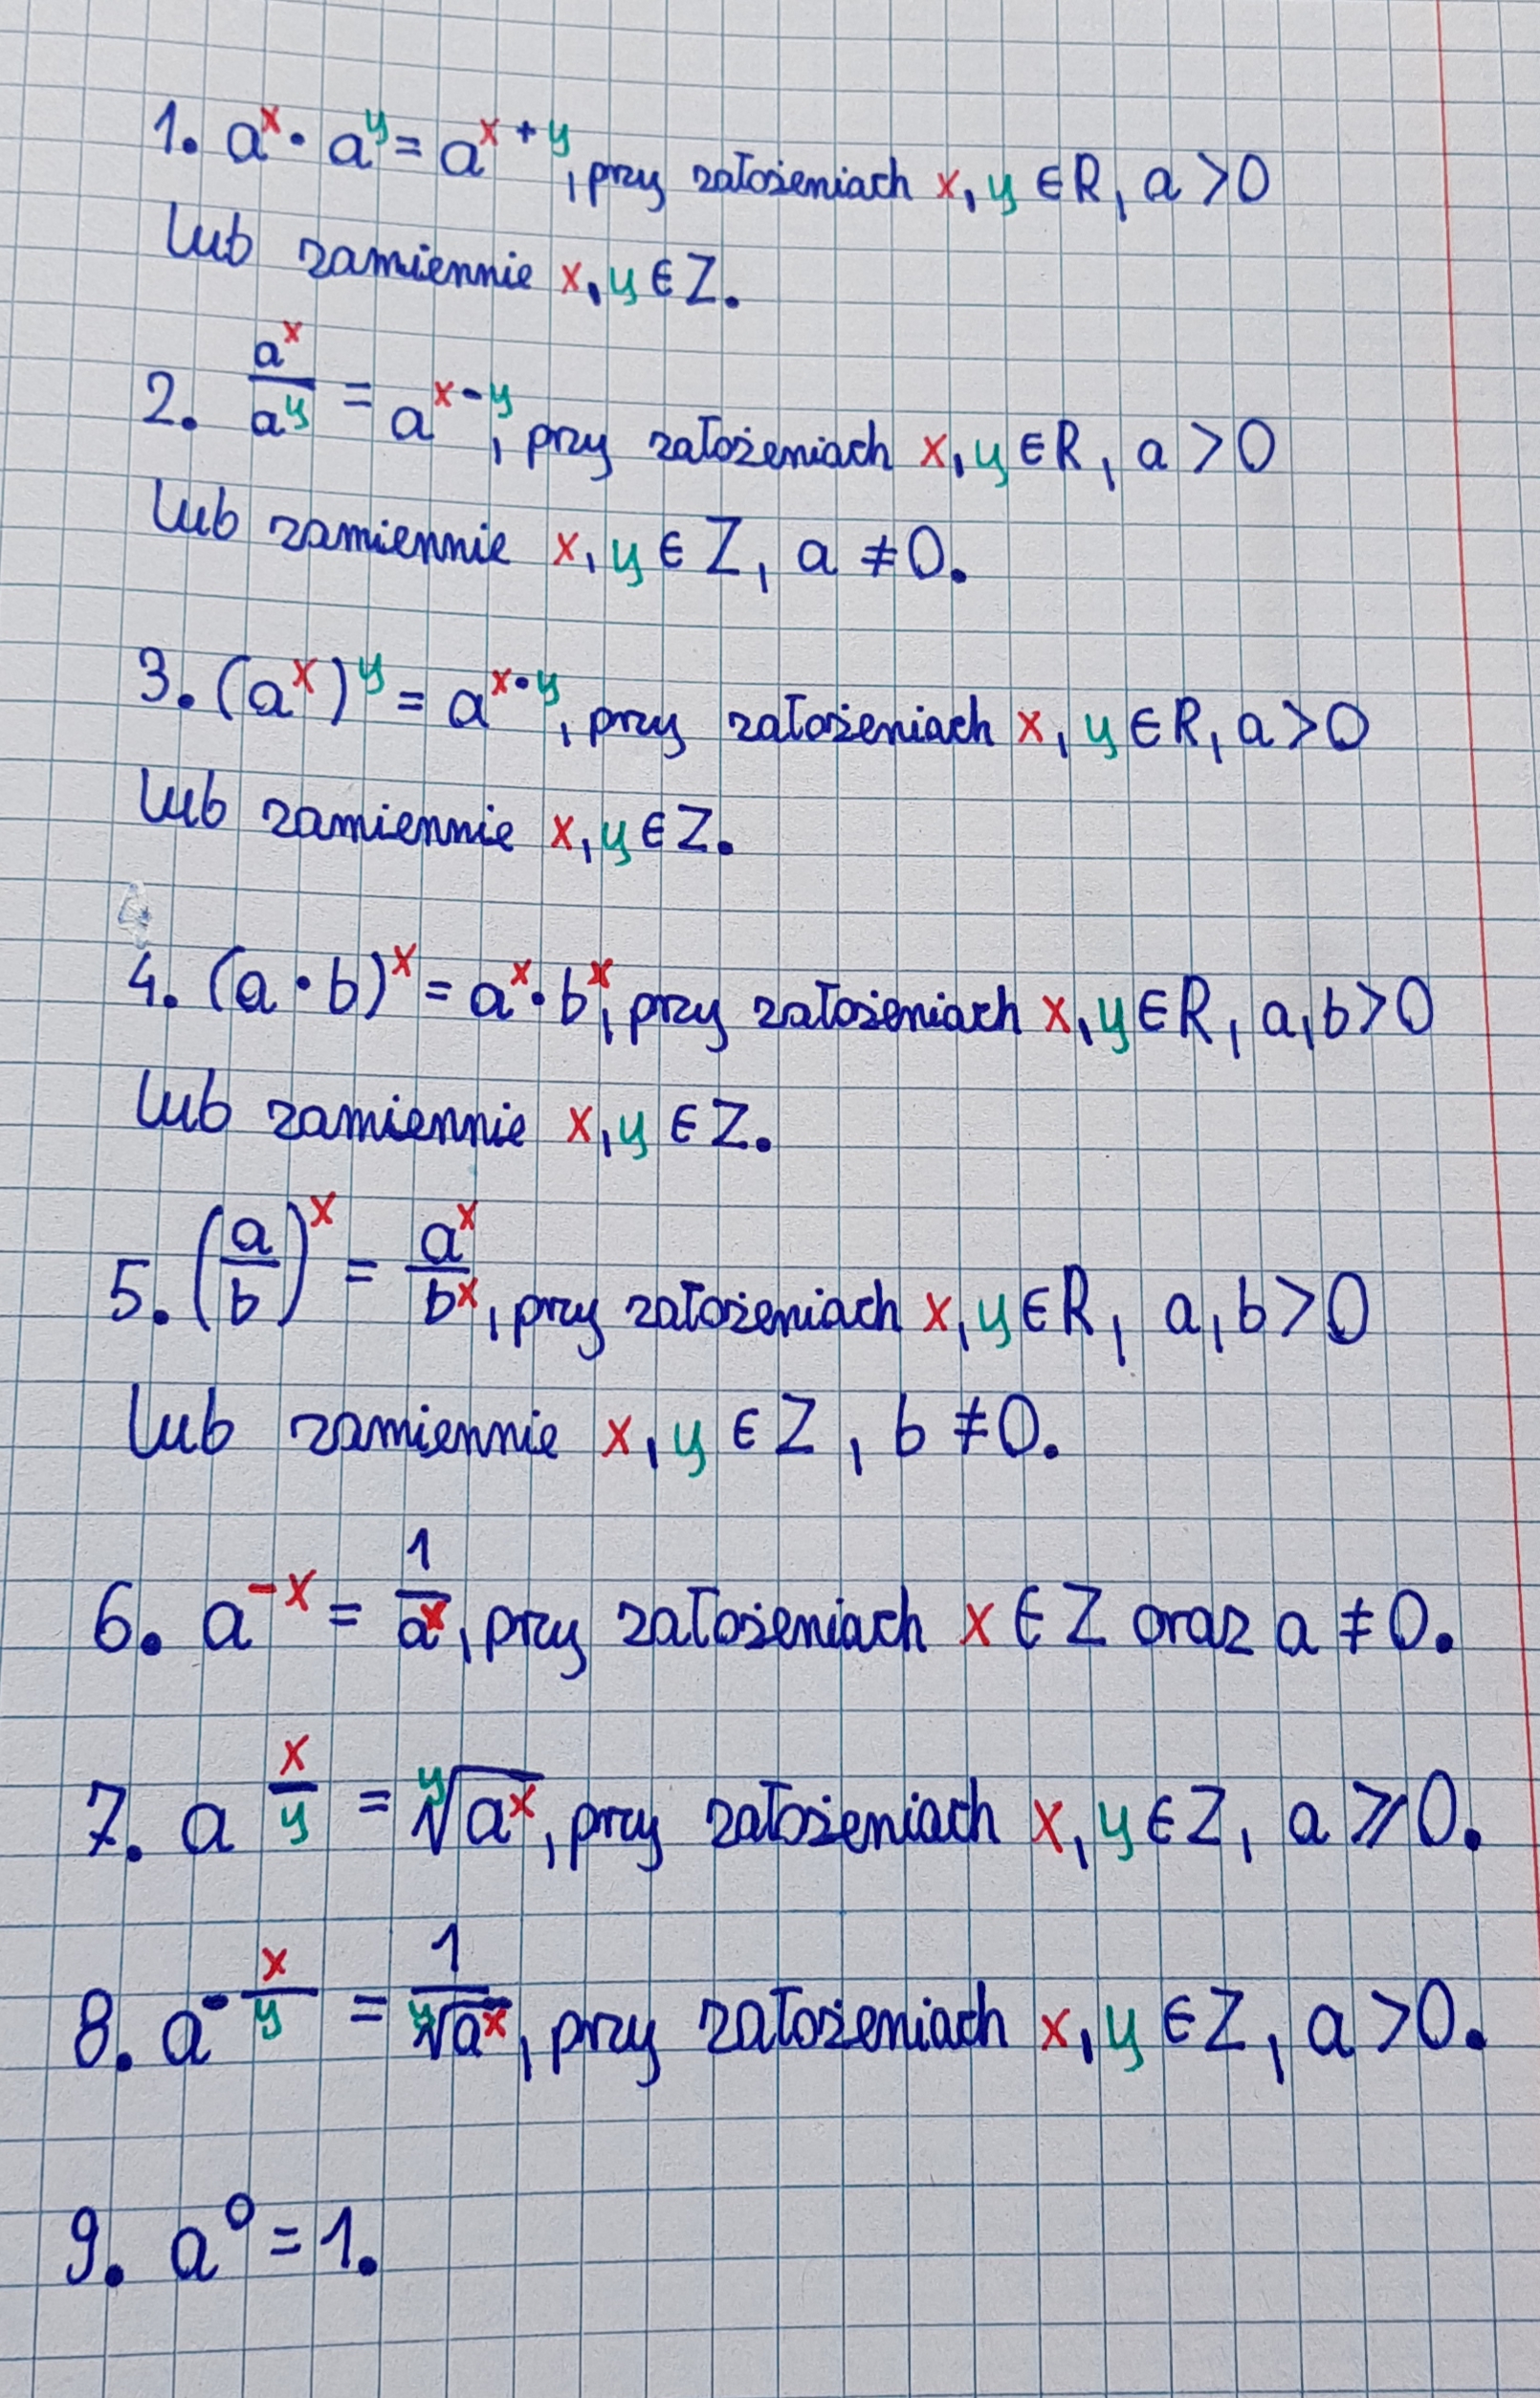 1. aˣ · aʸ = aˣ⁺ʸ, przy założeniach x, y ∈ R, a > 0
lub zamiennie x, y ∈ Z.
2. aˣ/aʸ = aˣ⁻ʸ, przy założeniach x, y ∈ R, a > 0
lub zamiennie x, y ∈ Z, a ≠ 0.
3. (aˣ)ʸ = aˣ·ʸ, przy założeniach x, y ∈ R, a > 0
lub zamiennie x, y ∈ Z.
4
4. (a · b)ˣ = aˣ · bˣ, przy założeniach x, y ∈ R, a, b > 0
lub zamiennie x, y ∈ Z.
5. (a/b)ˣ = aˣ/bˣ, przy założeniach x, y ∈ R, a, b > 0
lub zamiennie x, y ∈ Z, b ≠ 0.
6. a⁻ˣ = 1/aˣ, przy założeniach x ∈ Z oraz a ≠ 0.
7. a^(x/y) = ʸ√(aˣ), przy założeniach x, y ∈ Z, a ⩾ 0.
8. a^(-x/y) = 1/ʸ√(aˣ), przy założeniach x, y ∈ Z, a > 0.
9. a⁰ = 1.